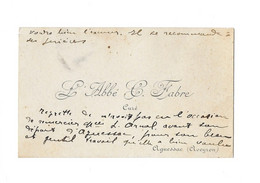 votre bien l'excuser. Il se recommande à
ses prières
L'Abbé C. Fabre
Curé
regrette de n'avoir pas eu l'occasion
de remercier avant son
départ d'Aguessac, pour son beau
et gentil travail qu'elle a bien voulu
Aguessac (Aveyron)